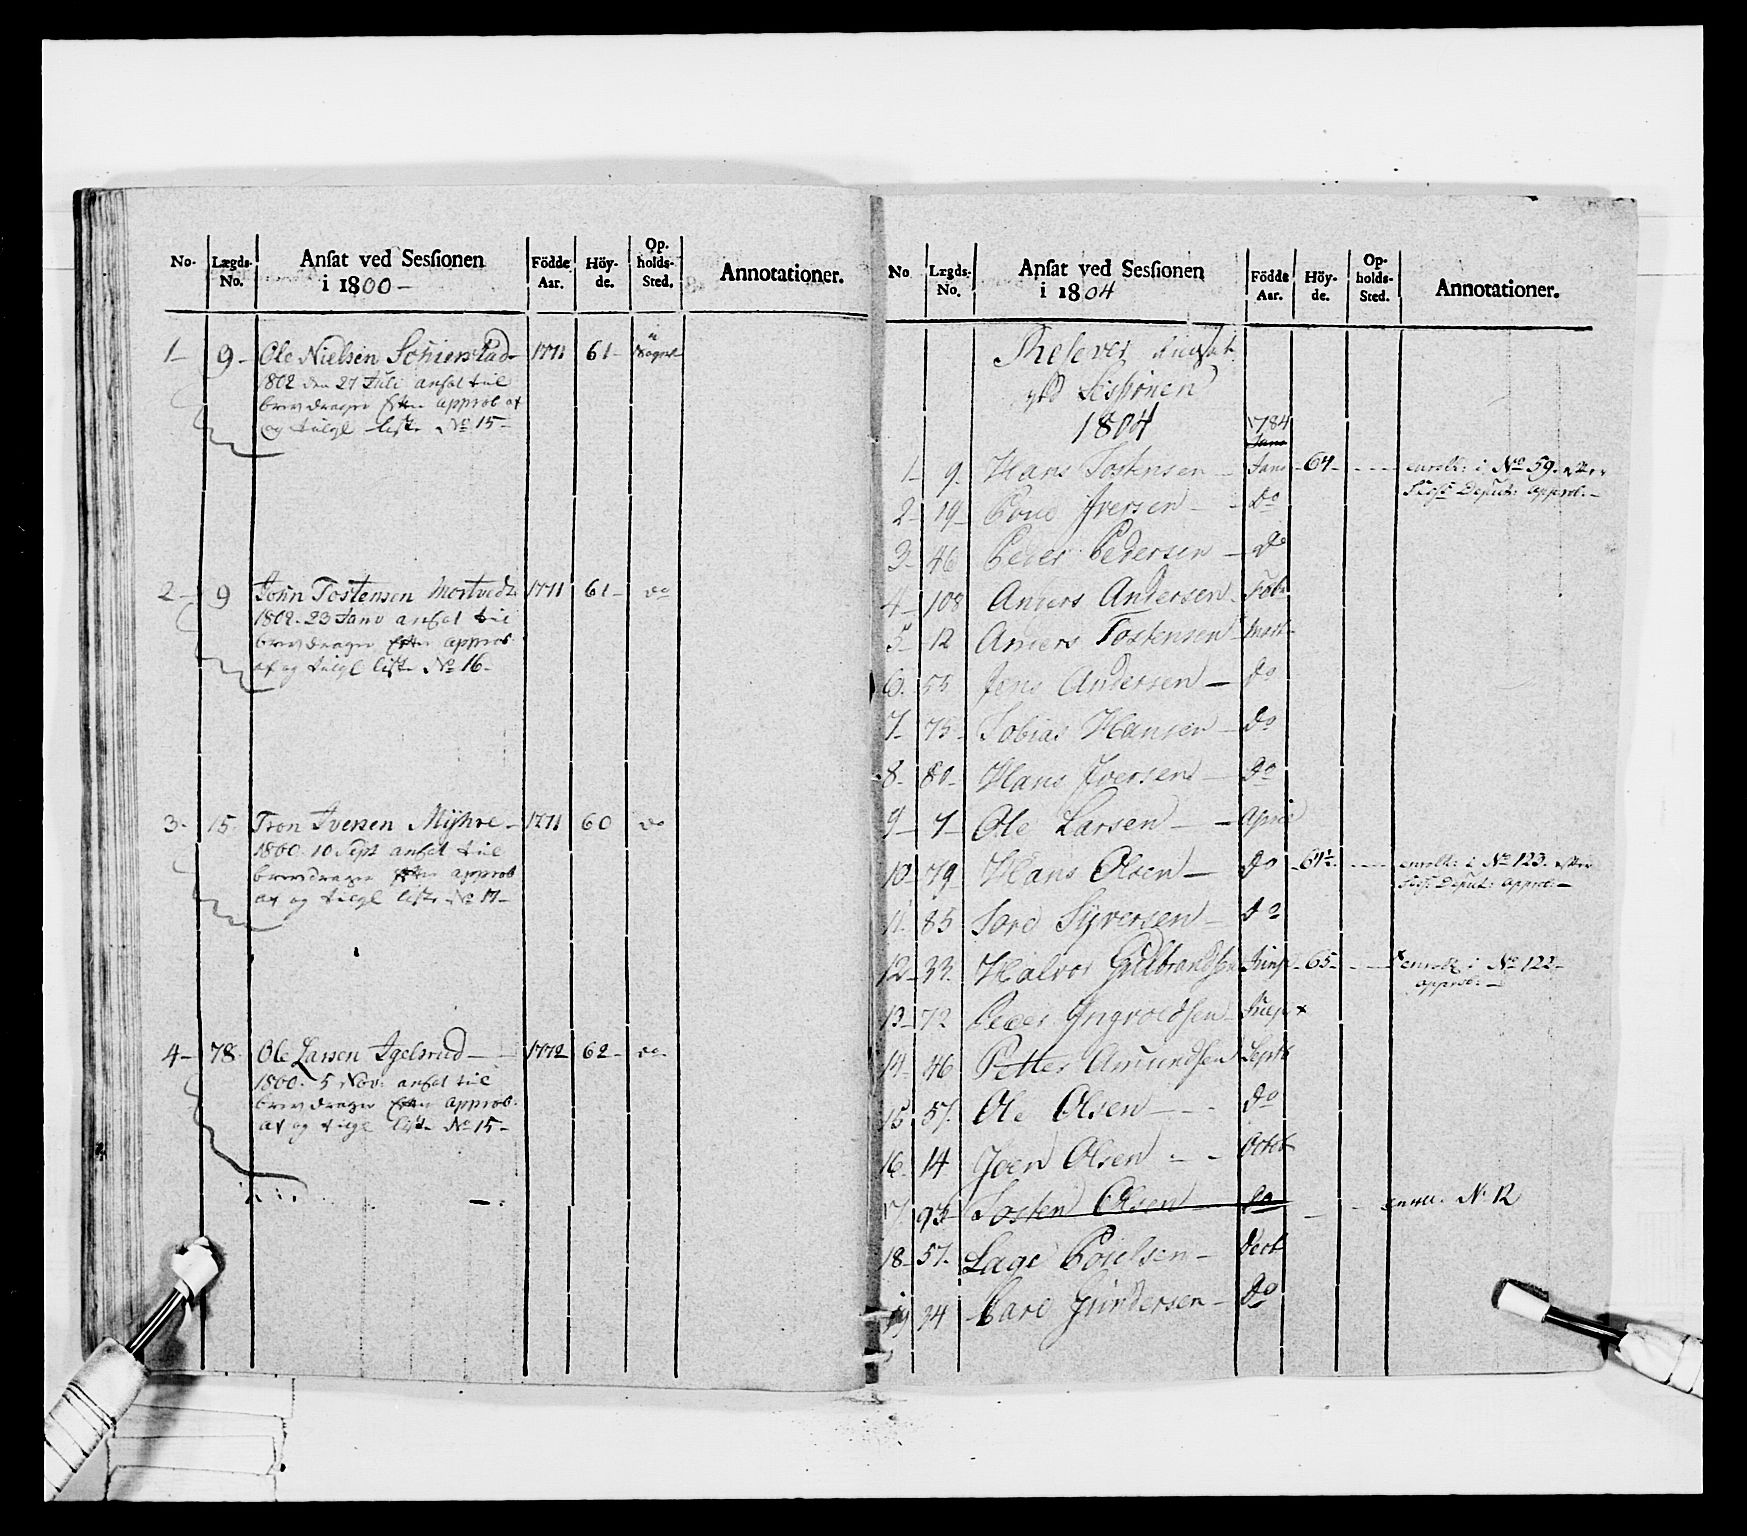 No. Lægds- No. Ansat ved Sessionen i 1800 - Födde Aar. Höy- de. Op- holds- Sted. Annotationer.
1- 9- Ole Nielsen 1771 61-
1802 den 27 Juli ansat til
approb af
og liste No 15-
2- 9 John Tostensen Mortvedt 1771 61- do
1802. 23 Janv ansat til
approb.
af og liste No 16-
3- 15- Tron Iversen Mÿhre- 1771 60 do
1800. 10 Sept ansat til
approb
af og liste No 17-
4- 78- Ole Larsen Igelsrud- 1772 62- do.
1800. 5 Nov. ansat til
approb.
af og liste No 15-
No. Lægds- No. Ansat ved Sessionen i 1804 Födde Aar. Höy- de. Op- holds- Sted. Annotationer.
ved Sessionen
1804 1784
1- 9- Hans Tostensen- Janv 64- enroll: i No 59.
Sess: Deput: approb:-
2- 19- Iversen- Do
3- 46 Peder Pedersen- Do
4- 108 Anders Andersen- Febr
5- 12 Anders Tostensen- Marts
6- 55 Jens Andersen- Do
7- 75- Tobias Hansen- Do
8- 80- Hans Iversen- Do
9- 7- Ole Larsen- April
10- 79- Hans Olsen- Do 64½ enroll: i No 123.
Sess: Deput: approb:-
11. 85 Syversen- Do
12- 33. Halvor Gulbrandsen 65- enroll: i No 122-
approb:-
13- 72 Peder Ingvoldsen- x
14- 46 Petter Amundsen Septb
15 57. Ole Olsen- Do
16- 14 Joen Olsen- Octob
17. 93 Tosten Olsen Do enroll. No 12
18- 57- Lage Decb
19 34 Gundersen- Do